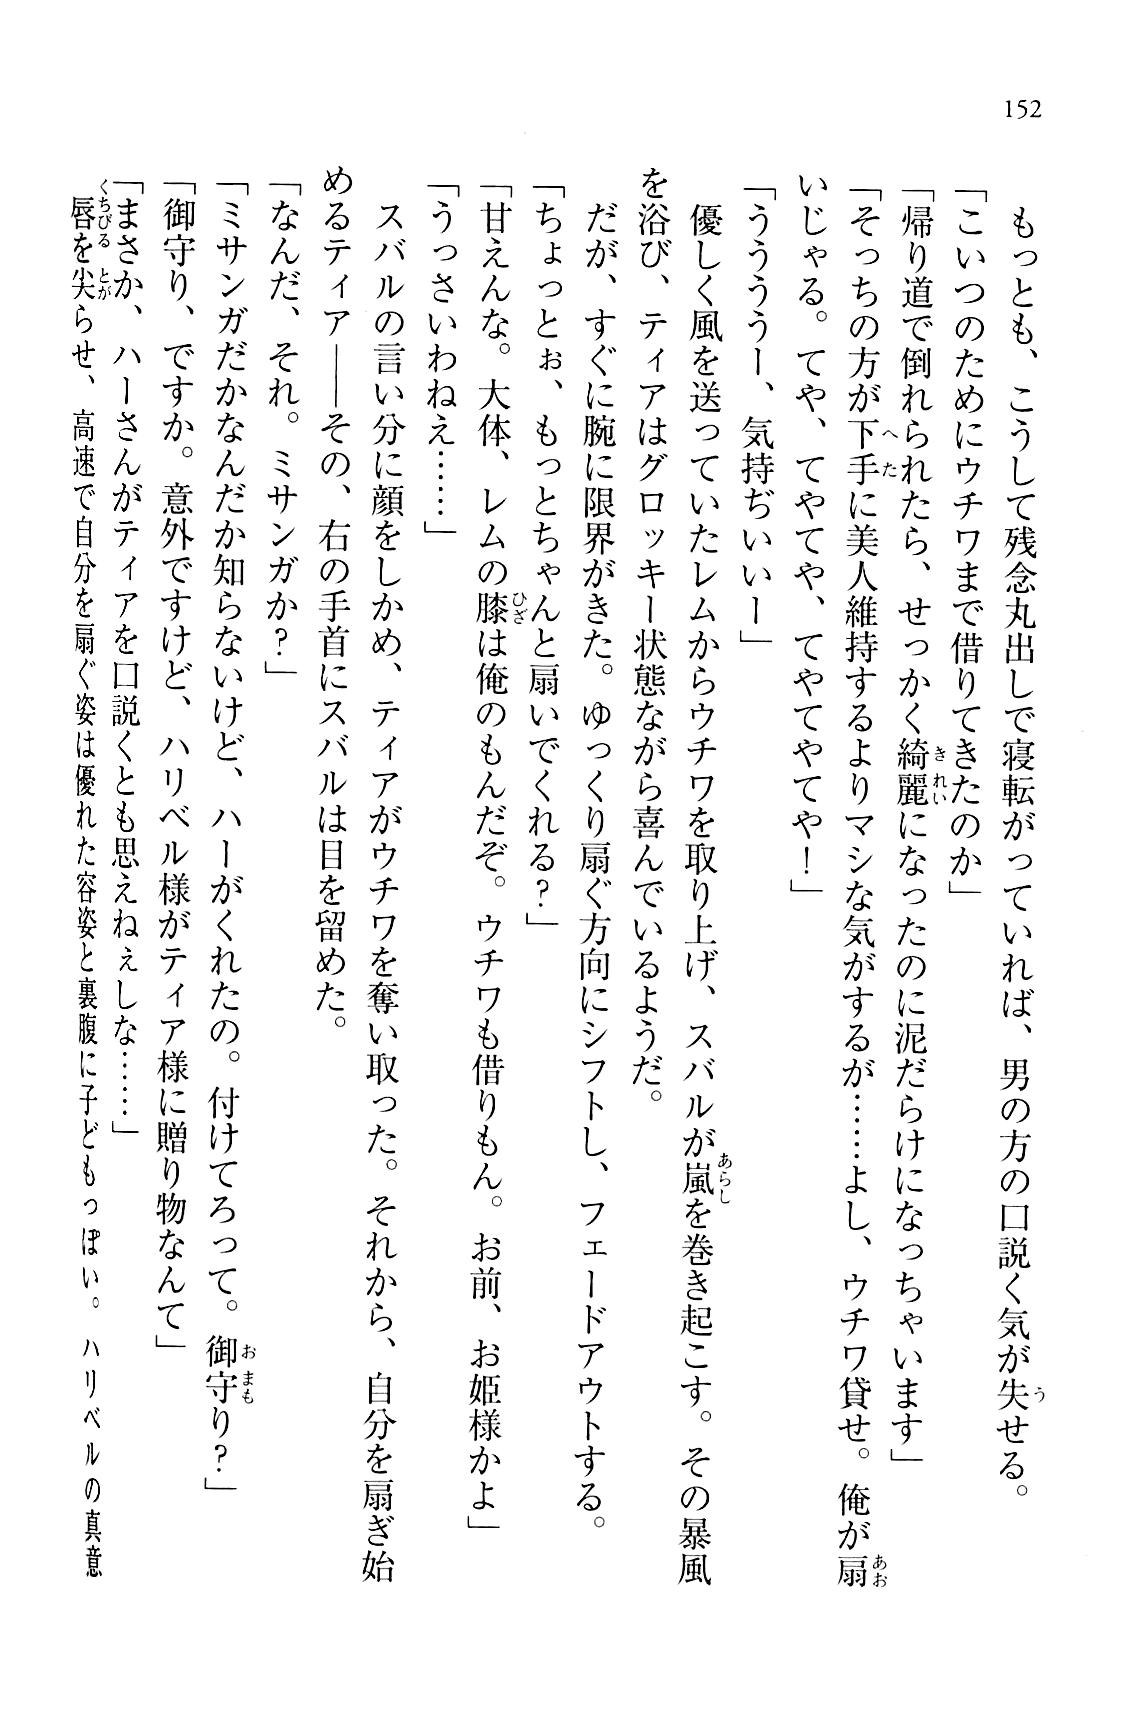 152
　もっとも、こうして残念丸出しで寝転がっていれば、男の方の口説く気が失せる。
「こいつのためにウチワまで借りてきたのか」
「帰り道で倒れられたら、せっかく綺麗になったのに泥だらけになっちゃいます」
「そっちの方が下手に美人維持するよりマシな気がするが……よし、ウチワ貸せ。俺が扇
いじゃる。てや、てやてや、てやてやてや！」
「うううう ー、気持ぢいいー」
　優しく風を送っていたレムからウチワを取り上げ、スバルが嵐を巻き起こす。その暴風
を浴び、ティアはグロッキー状態ながら喜んでいるようだ。
　だが、すぐに腕に限界がきた。ゆっくり扇ぐ方向にシフトし、フェードアウトする。
「ちょっとぉ、もっとちゃんと扇いでくれる？」
「甘えんな。大体、レムの膝は俺のもんだぞ。ウチワも借りもん。お前、お姫様かよ」
「うっさいわねえ……」
　スバルの言い分に顔をしかめ、ティアがウチワを奪い取った。それから、自分を扇ぎ始
めるティア――その、右の手首にスバルは目を留めた。
「なんだ、それ。ミサンガか？」
「ミサンガだかなんだか知らないけど、ハーがくれたの。付けてろって。御守り？」
「御守り、ですか。意外ですけど、ハリベル様がティア様に贈り物なんて」
「まさか、ハーさんがティアを口説くとも思えねぇしな……」
　唇を尖らせ、高速で自分を扇ぐ姿は優れた容姿と裏腹に子どもっぽい。ハリベルの真意